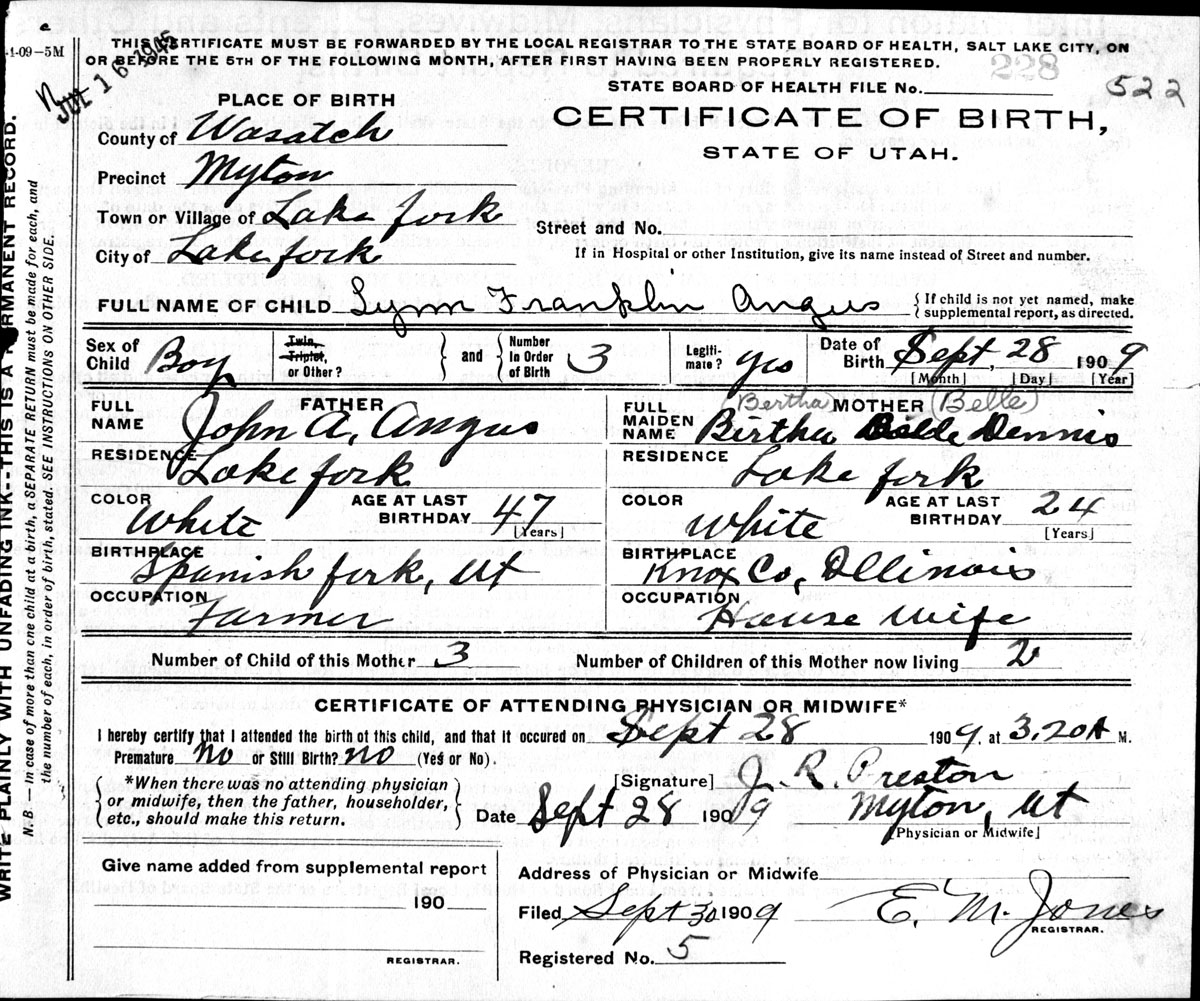 1-09-5M
THIS CERTIFICATE MUST BE FORWARDED BY THE LOCAL REGISTRAR TO THE STATE BOARD OF HEALTH, SALT LAKE CITY, ON
OR BEFORE THE 5TH OF THE FOLLOWING MONTH, AFTER FIRST HAVING BEEN PROPERLY REGISTERED.
16 1945
228
STATE BOARD OF HEALTH FILE No.
522
PLACE OF BIRTH
CERTIFICATE OF BIRTH,
STATE OF UTAH.
County of Wasatch
Precinct Myton
Town or Village of Lake fork
Street and No.
City of Lake fork
If in Hospital or other Institution, give its name instead of Street and number.
FULL NAME OF CHILD Lynn Franklin Angus
{ If child is not yet named, make
supplemental report, as directed.
Sex of Child Boy
Twin, Triplet, or Other?
and
Number in Order of Birth 3
Legitimate? yes
Date of Birth Sept, 28 1909
[Month] [Day] [Year]
FATHER
FULL NAME John A, Angus
RESIDENCE Lake fork
COLOR White
AGE AT LAST BIRTHDAY 47
[Years]
BIRTHPLACE Spanish fork, Ut
OCCUPATION Farmer
(Bertha) MOTHER (Belle)
FULL MAIDEN NAME Birtha Belle Dennis
RESIDENCE Lake fork
COLOR White
AGE AT LAST BIRTHDAY 24
[Years]
BIRTHPLACE Knox Co, Illinois
OCCUPATION House Wife
Number of Child of this Mother 3
Number of Children of this Mother now living 2
CERTIFICATE OF ATTENDING PHYSICIAN OR MIDWIFE*
I hereby certify that I attended the birth of this child, and that it occured on Sept 28 1909, at 3,20 A M.
Premature no or Still Birth? no (Yes or No).
*When there was no attending physician
or midwife, then the father, householder,
etc., should make this return.
[Signature] J. R. Preston
Date Sept 28 1909 Myton, Ut
[Physician or Midwife]
Give name added from supplemental report
190
REGISTRAR.
Address of Physician or Midwife
Filed Sept 30 1909 E. M. Jones
REGISTRAR.
Registered No. 5
WRITE PLAINLY WITH UNFADING INK--THIS IS A PERMANENT RECORD.
N. B.—In case of more than one child at a birth, a SEPARATE RETURN must be made for each, and
the number of each, in order of birth, stated. SEE INSTRUCTIONS ON OTHER SIDE.